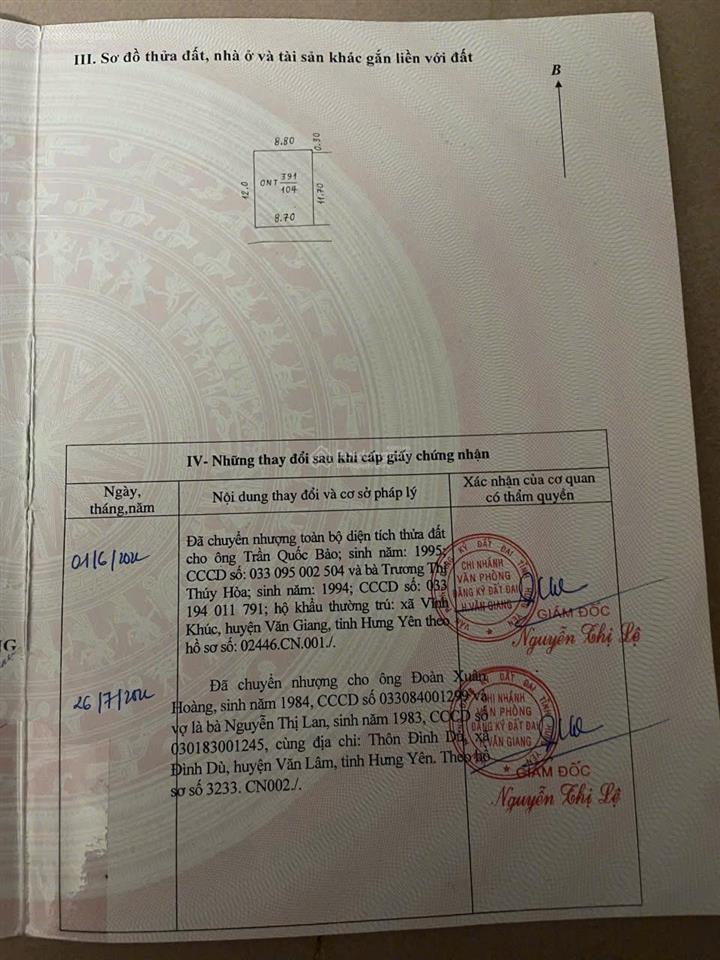 III. Sơ đồ thửa đất, nhà ở và tài sản khác gắn liền với đất
B
8.80
0.30
12.0
ONT 391
104
11.70
8.70
IV- Những thay đổi sau khi cấp giấy chứng nhận
Ngày,
tháng,năm
Nội dung thay đổi và cơ sở pháp lý
Xác nhận của cơ quan
có thẩm quyền
01/6/2022
Đã chuyển nhượng toàn bộ diện tích thửa đất
cho ông Trần Quốc Bảo; sinh năm: 1995;
CCCD số: 033 095 002 504 và bà Trương Thị
Thúy Hòa; sinh năm: 1994; CCCD số: 033
194 011 791; hộ khẩu thường trú: xã Vĩnh
Khúc, huyện Văn Giang, tỉnh Hưng Yên theo
hồ sơ số: 02446.CN.001./.
CHI NHÁNH
VĂN PHÒNG
ĐĂNG KÝ ĐẤT ĐAI
H.VĂN GIANG
GIÁM ĐỐC
Nguyễn Thị Lệ
26/7/2022
Đã chuyển nhượng cho ông Đoàn Xuân
Hoàng, sinh năm 1984, CCCD số 033084001299 và
vợ là bà Nguyễn Thị Lan, sinh năm 1983, CCCD số
030183001245, cùng địa chỉ: Thôn Đình Dù, xã
Đình Dù, huyện Văn Lâm, tỉnh Hưng Yên. Theo hồ
sơ số 3233. CN002./.
CHI NHÁNH
VĂN PHÒNG
ĐĂNG KÝ ĐẤT ĐAI
H.VĂN GIANG
GIÁM ĐỐC
Nguyễn Thị Lệ